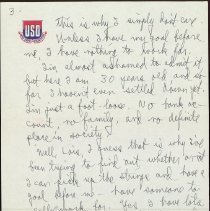 3.
USO
This is why I simply don't care.
Unless I have my goal before
me, I have nothing to work for.
I'm almost ashamed to admit it
but here I am 30 years old and so
far I haven't even settled down yet.
I'm just a foot-loose. No bank ac-
count, no family, and no definite
place in society.
Well, Lois, I guess that is why I've
been trying to find out whether or not
I can pick up the strings and have a
goal before me – have someone to
work for. Yes I have lots